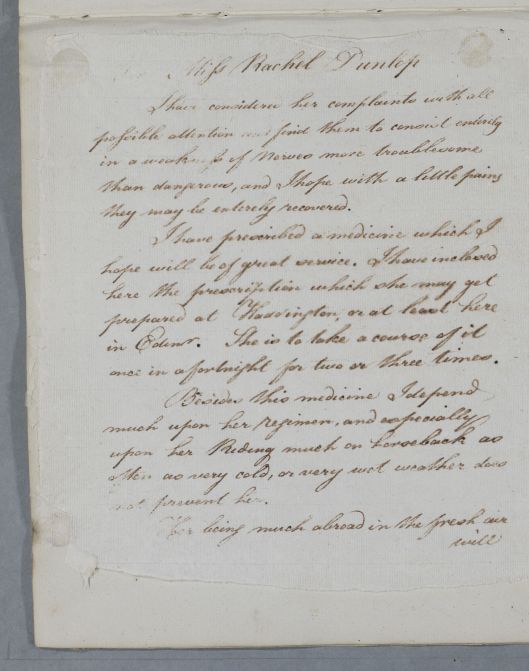 Miss Rachel Dunlop
I have considered her complaints with all
possible attention and find them to consist entirely
in a weakness of Nerves more troublesome
than dangerous, and I hope with a little pains
they may be entirely recovered.
I have prescribed a medicine which I
hope will be of great service. I have inclosed
here the prescription which she may get
prepared at Haddington, or at least here
in Edinr. She is to take a course of it
once in a fortnight for two or three times.
Besides this medicine I depend
much upon her regimen, and especially
upon her Riding much on horseback as
often as very cold, or very wet weather does
not prevent her.
Her being much abroad in the fresh air
will